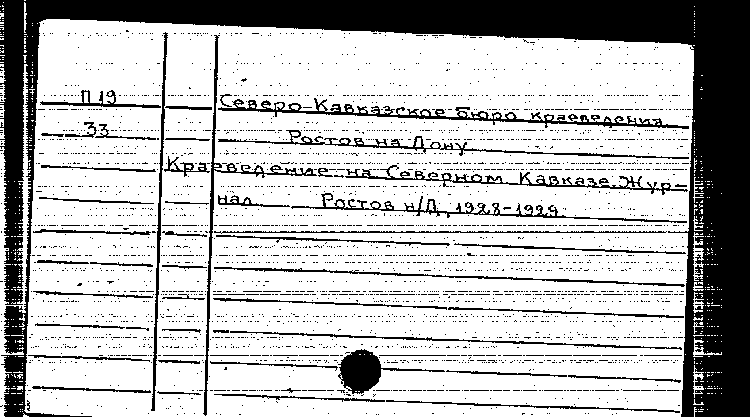 П19 Северо-Кавказское бюро краеведения
33 Ростов на Дону
Краеведение на Северном Кавказе. Жур-
нал. Ростов н/Д, 1928-1929.